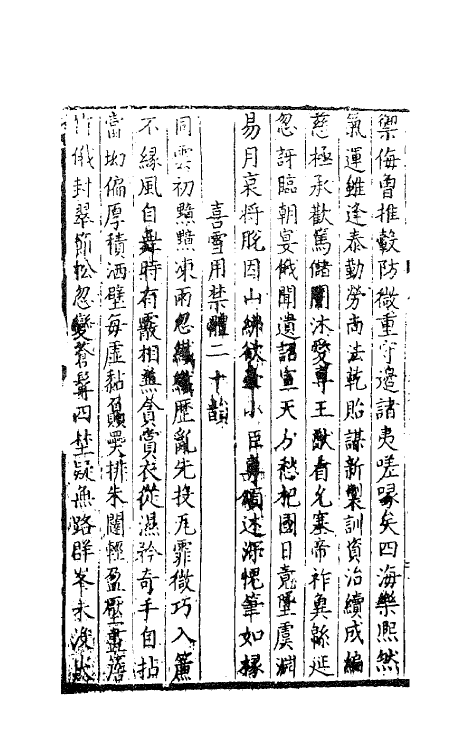 禦侮曾推轂防微重守邊諸夷嗟喙矣四海樂熙然
氣運雖逢泰勤勞尚法乾貽謀新製訓資治續成編
慈極承歡篤儲闈沐愛專王猷看允塞帝祚與緜延
忽訝臨朝宴俄聞遺詔宣天方愁杞國日竟墜虞淵
易月哀將脫因山紼欲牽小臣專頌述深愧筆如椽
喜雪用禁體二十韻
同雲初黯黯凍雨忽纖纖歷亂先投瓦霏微巧入簾
不緣風自舞時有霰相兼貪賞衣從濕矜奇手自拈
當坳偏厚積洒壁每虛黏贔屭排朱闥輕盈壓畫簷
竹俄封翠節松忽變蒼髯四埜疑無路群峯未沒尖